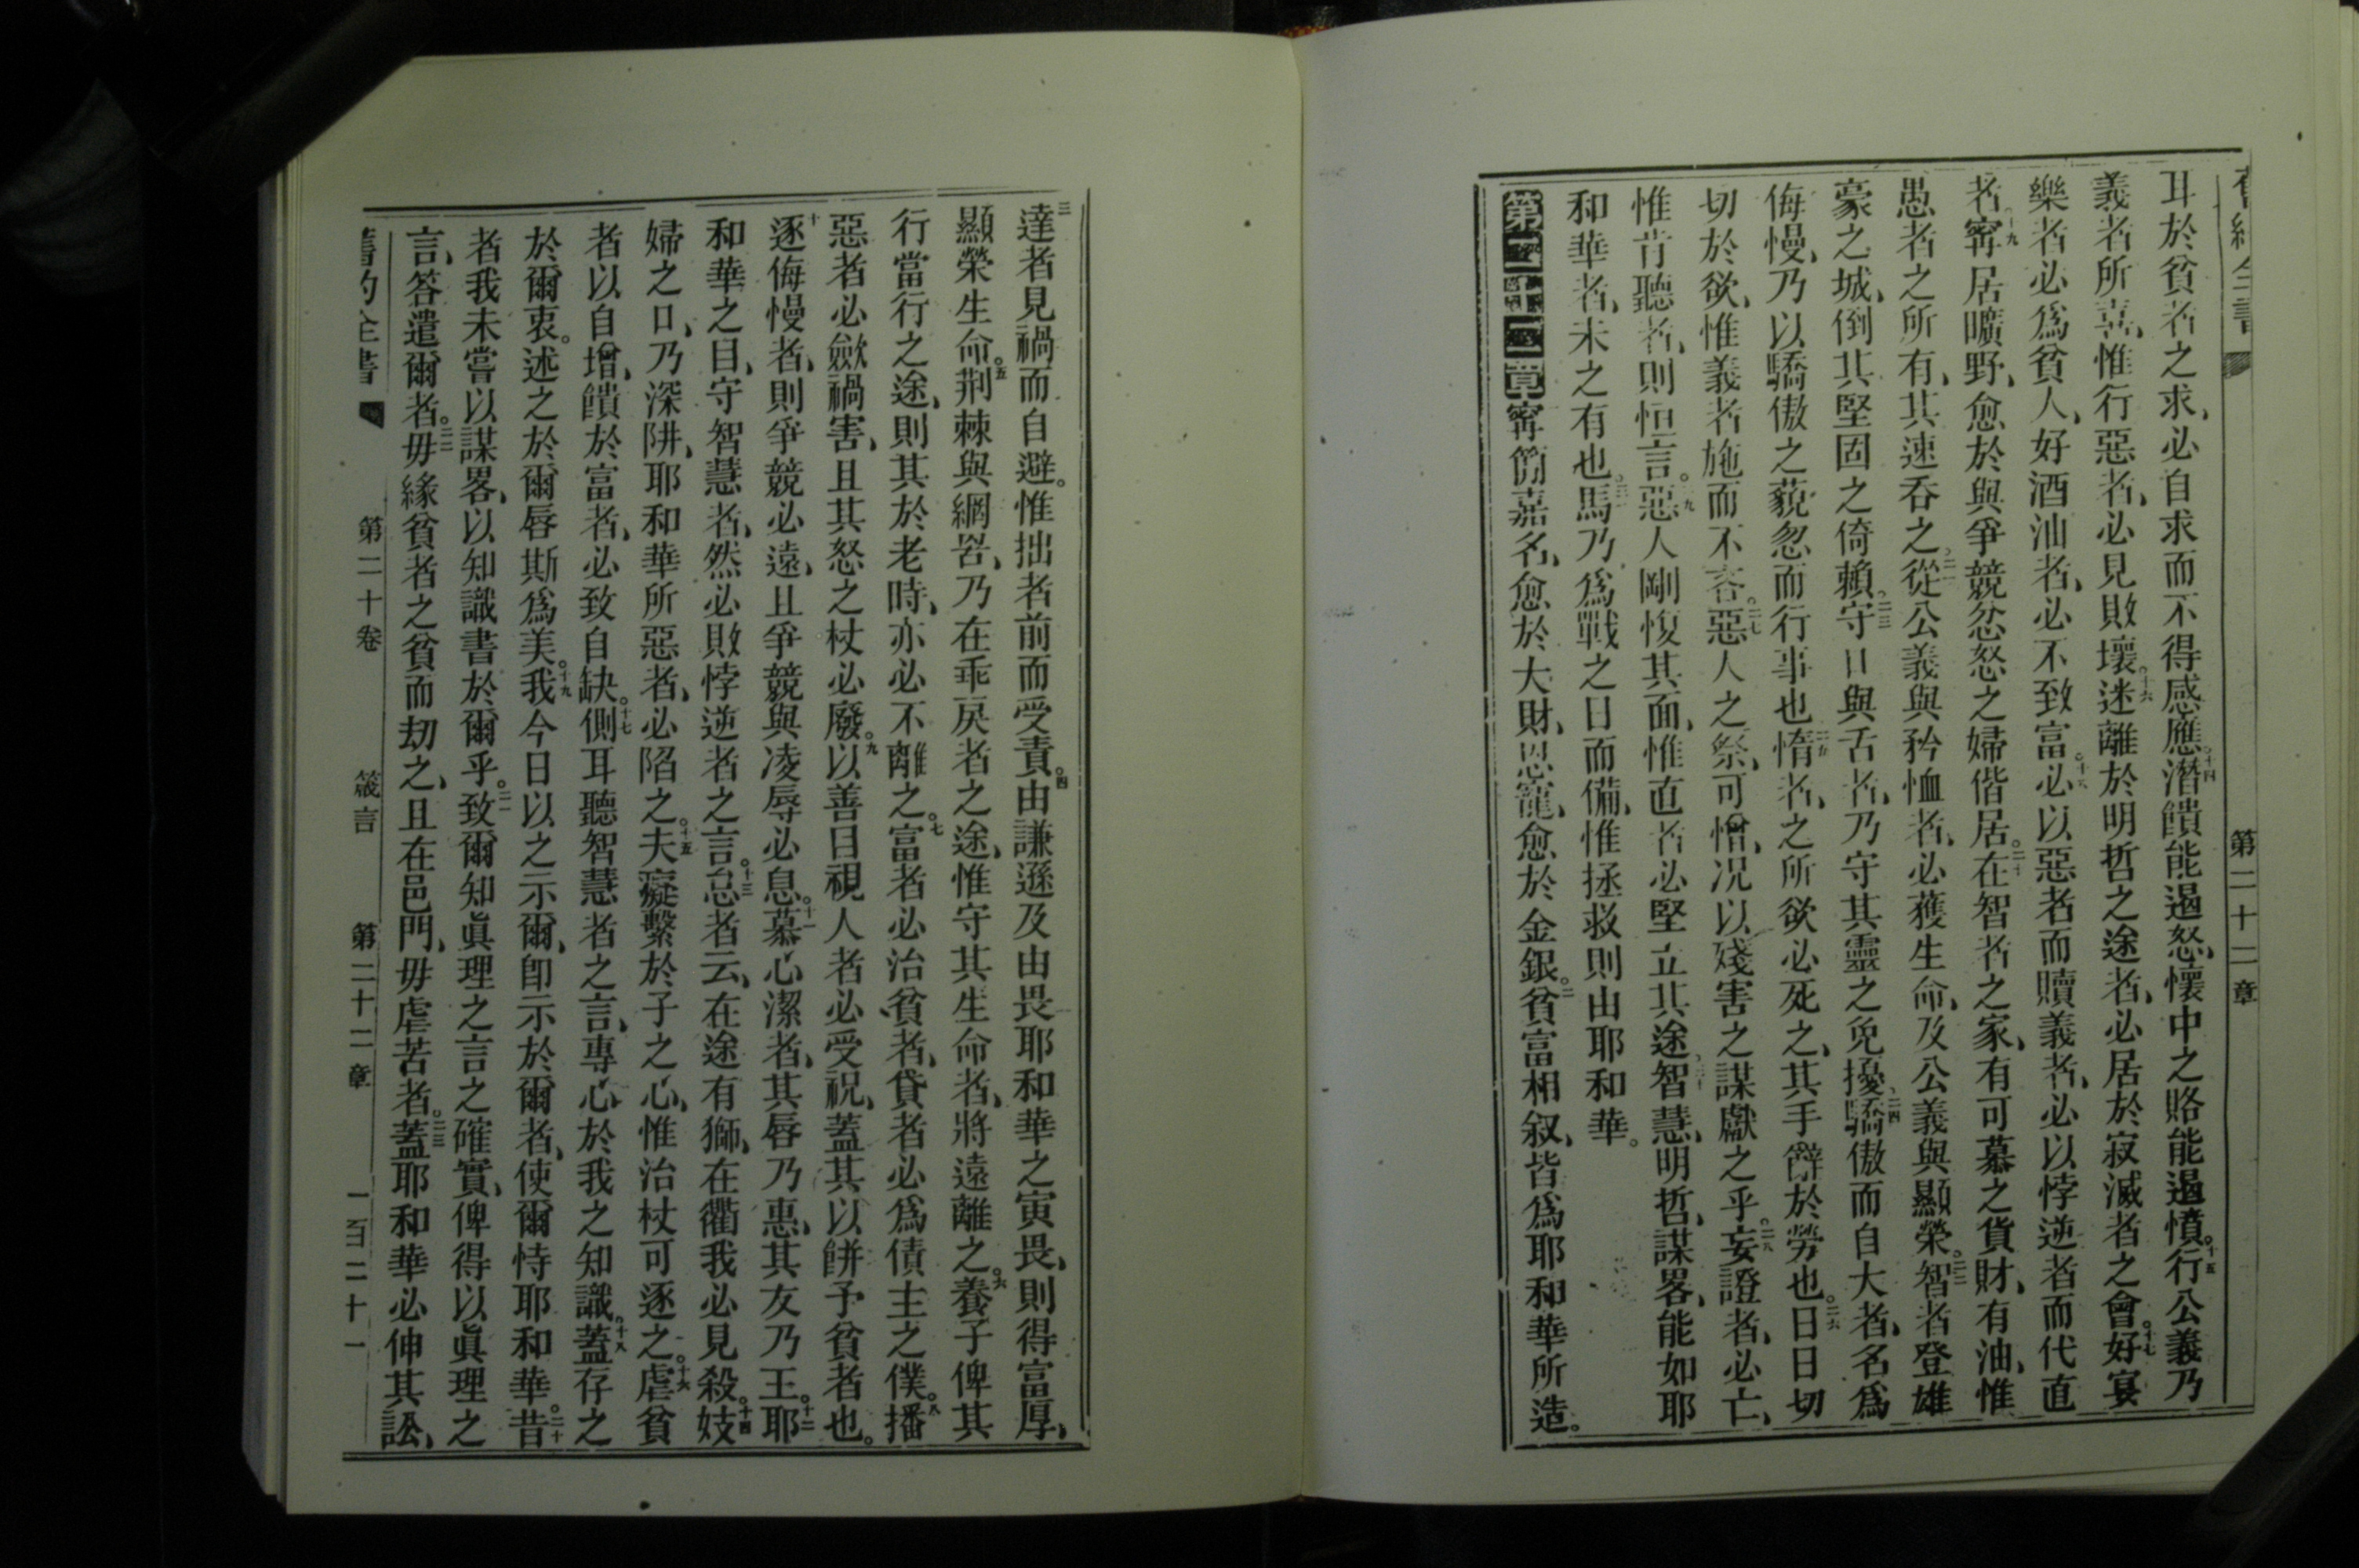 第二十一章
耳於貧者之求、必自求而不得感應。十四潛饋能遏怒、懷中之賂能遏憤。十五行公義乃
義者所喜、惟行惡者、必見敗壞。十六迷離於明哲之途者、必居於寂滅者之會。十七好宴
樂者必爲貧人、好酒油者、必不致富。十八必以惡者而贖義者、必以悖逆者而代直
者。十九寗居曠野、愈於與爭競忿怒之婦偕居。二十在智者之家、有可慕之貨財、有油、惟
愚者之所有、其速吞之。二一從公義與矜恤者、必獲生命、及公義與顯榮。二二智者登雄
豪之城、倒其堅固之倚賴。二三守口與舌者、乃守其靈之免擾。二四驕傲而自大者、名爲
侮慢、乃以驕傲之藐忽而行事也。二五惰者、之所欲必死之、其手辭於勞也。二六日日切
切於欲、惟義者施而不吝。二七惡人之祭、可憎、况以殘害之謀獻之乎。二八妄證者、必亡、
惟肯聽者、則恒言。二九惡人剛愎其面、惟直者必堅立其途。三十智慧、明哲、謀畧、能如耶
和華者、未之有也。三一馬乃爲戰之日而備、惟拯救則由耶和華。
第二十二章寗簡嘉名、愈於大財、恩寵、愈於金銀。二貧富相叙、皆爲耶和華所造。
三達者見禍而自避。惟拙者前而受責。四由謙遜及由畏耶和華之寅畏、則得富厚、
顯榮生命。五荆棘與網罟、乃在乖戾者之途、惟守其生命者、將遠離之。六養子俾其
行當行之途、則其於老時、亦必不離之。七富者必治貧者、貸者必爲債主之僕。八播
惡者必斂禍害、且其怒之杖必廢。九以善目視人者必受祝、蓋其以餅予貧者也。
十逐侮慢者、則爭競必遠、且爭競與凌辱必息。十一慕心潔者、其唇乃惠、其友乃王。十二耶
和華之目、守智慧者、然必敗悖逆者之言。十三怠者云、在途有獅、在衢我必見殺。十四妓
婦之口、乃深阱、耶和華所惡者、必陷之。十五夫癡繫於子之心、惟治杖可逐之。十六虐貧
者以自增、饋於富者、必致自缺。十七側耳聽智慧者之言、專心於我之知識。十八蓋存之
於爾衷。述之於爾唇斯爲美。十九我今日以之示爾、卽示於爾者、使爾恃耶和華。二十昔
者我未嘗以謀畧、以知識書於爾乎。二一致爾知眞理之言之確實、俾得以眞理之
言、答遣爾者。二二毋緣貧者之貧而刧之、且在邑門、毋虐苦者。二三蓋耶和華必伸其訟、
舊約全書 第二十卷 箴言 第二十二章 一百二十一